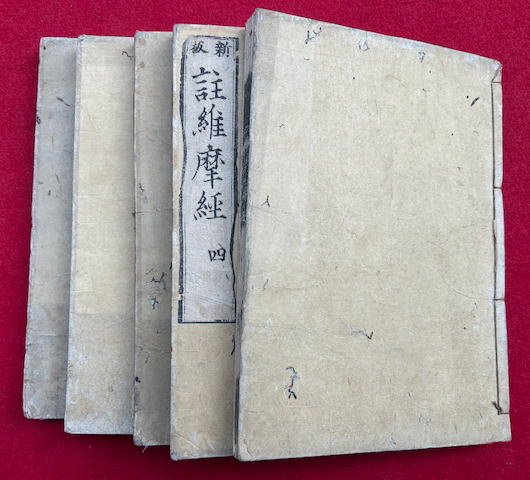 新板
註維摩經
四